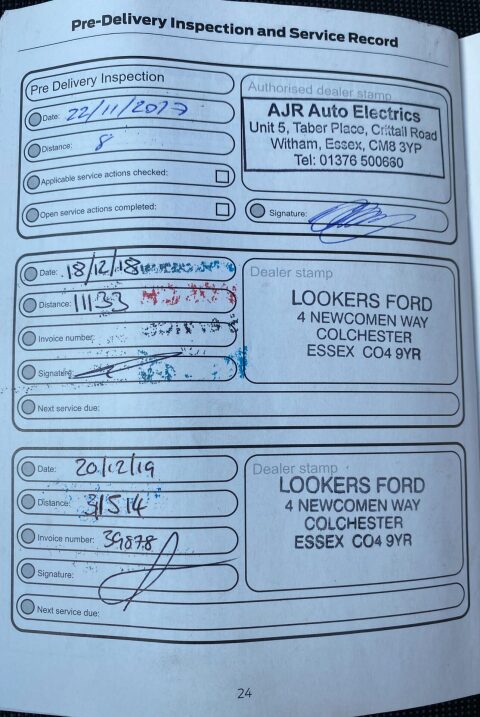 Pre-Delivery Inspection and Service Record
Pre Delivery Inspection
Date: 22/11/2017
Distance: 8
Applicable service actions checked:
Open service actions completed:
Authorised dealer stamp
AJR Auto Electrics
Unit 5, Taber Place, Crittall Road
Witham, Essex, CM8 3YP
Tel: 01376 500660
Signature:
Date: 18/12/18
Distance: 11133
Invoice number:
Signature:
Next service due:
Dealer stamp
LOOKERS FORD
4 NEWCOMEN WAY
COLCHESTER
ESSEX CO4 9YR
Date: 20/12/19
Distance: 31514
Invoice number: 39878
Signature:
Next service due:
Dealer stamp
LOOKERS FORD
4 NEWCOMEN WAY
COLCHESTER
ESSEX CO4 9YR
24